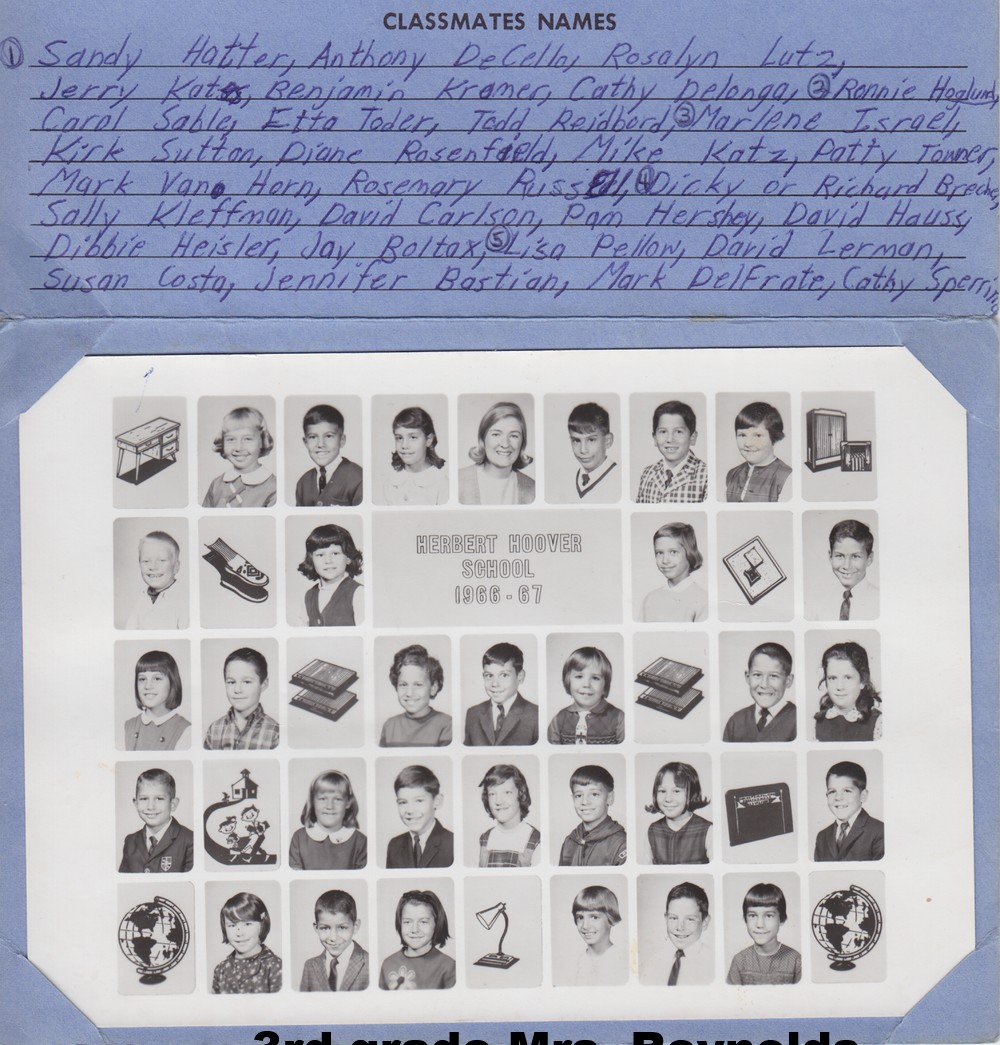 CLASSMATES NAMES
① Sandy Hatter, Anthony DeCello, Rosalyn Lutz,
Jerry Kates, Benjamin Kramer, Cathy Delonga, ② Ronnie Hoglund,
Carol Sable, Etta Toder, Todd Reidbord, ③ Marlene Israel,
Kirk Sutton, Diane Rosenfeld, Mike Katz, Patty Towner,
Mark Van Horn, Rosemary Russell, ④ Dicky or Richard
Sally Kleffman, David Carlson, Pam Hershey, David Hauss,
Dibbie Heisler, Jay Boltax, ⑤ Lisa Pellow, David Lerman,
Susan Costa, Jennifer Bastian, Mark DelFrate, Cathy
HERBERT HOOVER
SCHOOL
1966-67
3rd grade Mrs. Reynolds